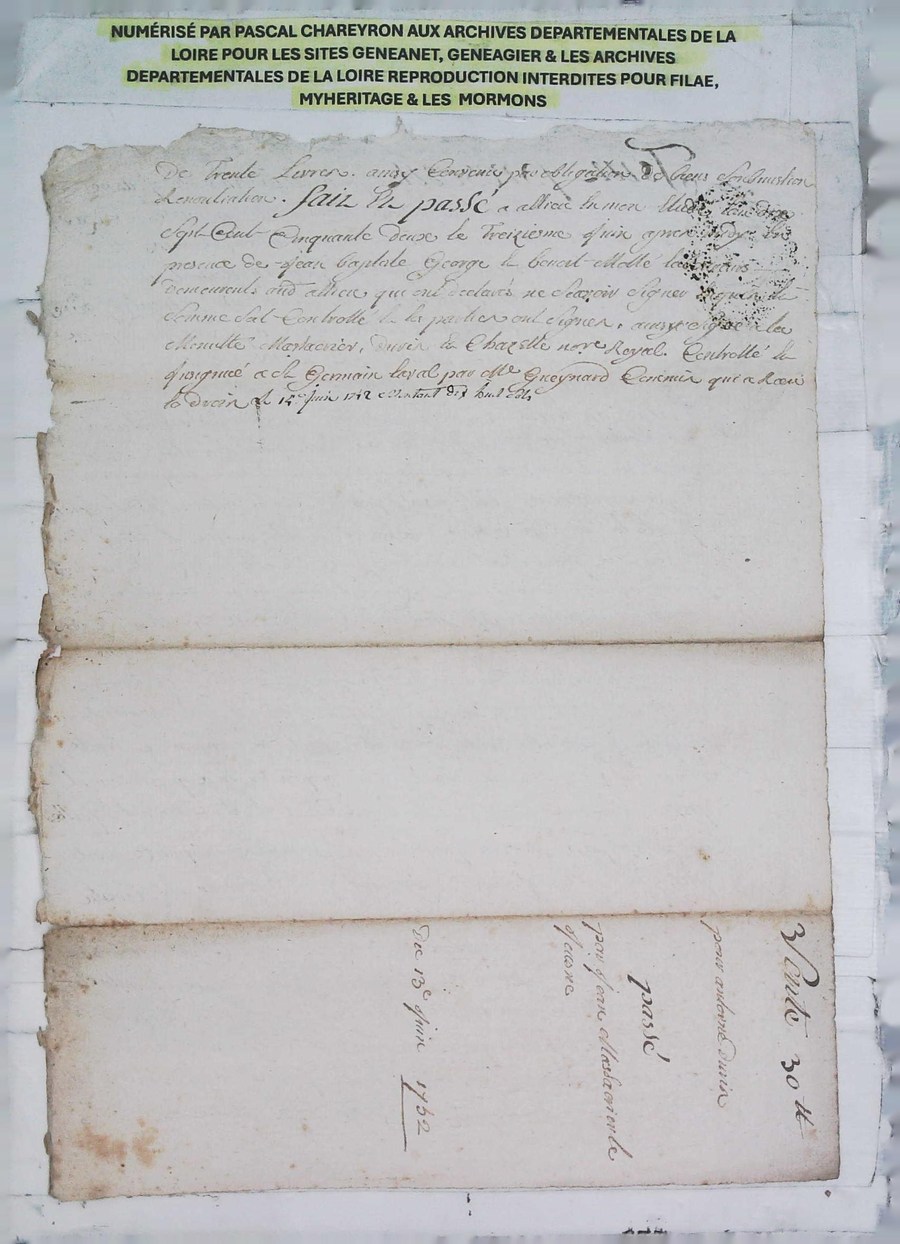 NUMÉRISÉ PAR PASCAL CHAREYRON AUX ARCHIVES DEPARTEMENTALES DE LA
LOIRE POUR LES SITES GENEANET, GENEAGIER & LES ARCHIVES
DEPARTEMENTALES DE LA LOIRE REPRODUCTION INTERDITES POUR FILAE,
MYHERITAGE & LES MORMONS
De Trente Livres. ainsy Convenu par obligation de biens soubmission
Renontiation. fait Et passé a allieu En mon
Sept Cent Cinquante deux le Treiziesme Juin apres midy En
presence de Jean baptiste George & benoit
demeurents aud allieu qui ont declarés ne Scavoir Signer
Semme Sal Controllé & les parties ont Signer, ainsy Signé a la
Minutte Massacrier, Durin & Chazelle nore Royal. Controllé &
Insignué a St Germain laval par Me Gueynard Commis qui a Receu
le droit le 14e juin 1752
Vente 30 tt
pour antoine durin
passé
par Jean Massacrier le
Jeusne
Du 13e Juin 1752